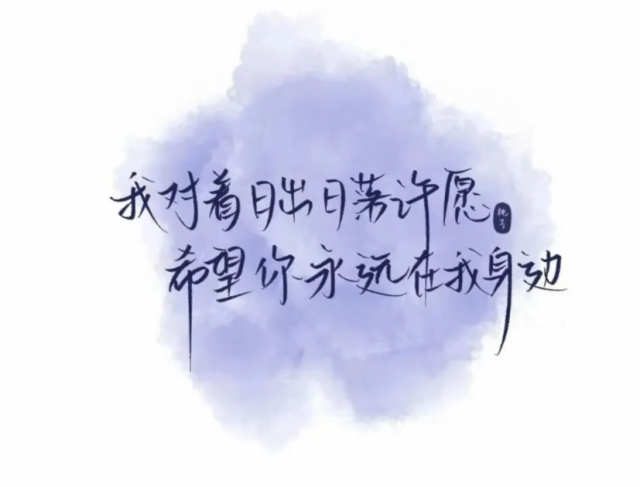 我对着日出日落许愿
希望你永远在我身边